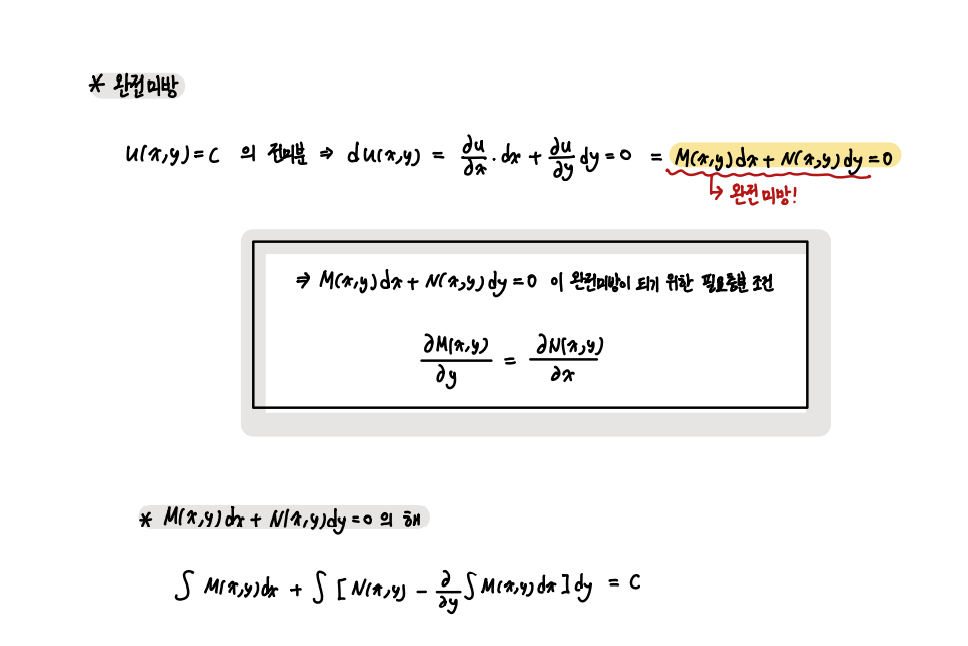 * 완전미방
u(x,y)=C 의 전미분 ⇒ du(x,y) = ∂u/∂x · dx + ∂u/∂y dy = 0 = M(x,y)dx + N(x,y)dy = 0
↳ 완전미방!
⇒ M(x,y)dx + N(x,y)dy = 0 이 완전미방이 되기 위한 필요충분 조건
∂M(x,y)/∂y = ∂N(x,y)/∂x
* M(x,y)dx + N(x,y)dy = 0 의 해
∫ M(x,y)dx + ∫ [N(x,y) - ∂/∂y ∫ M(x,y)dx] dy = C